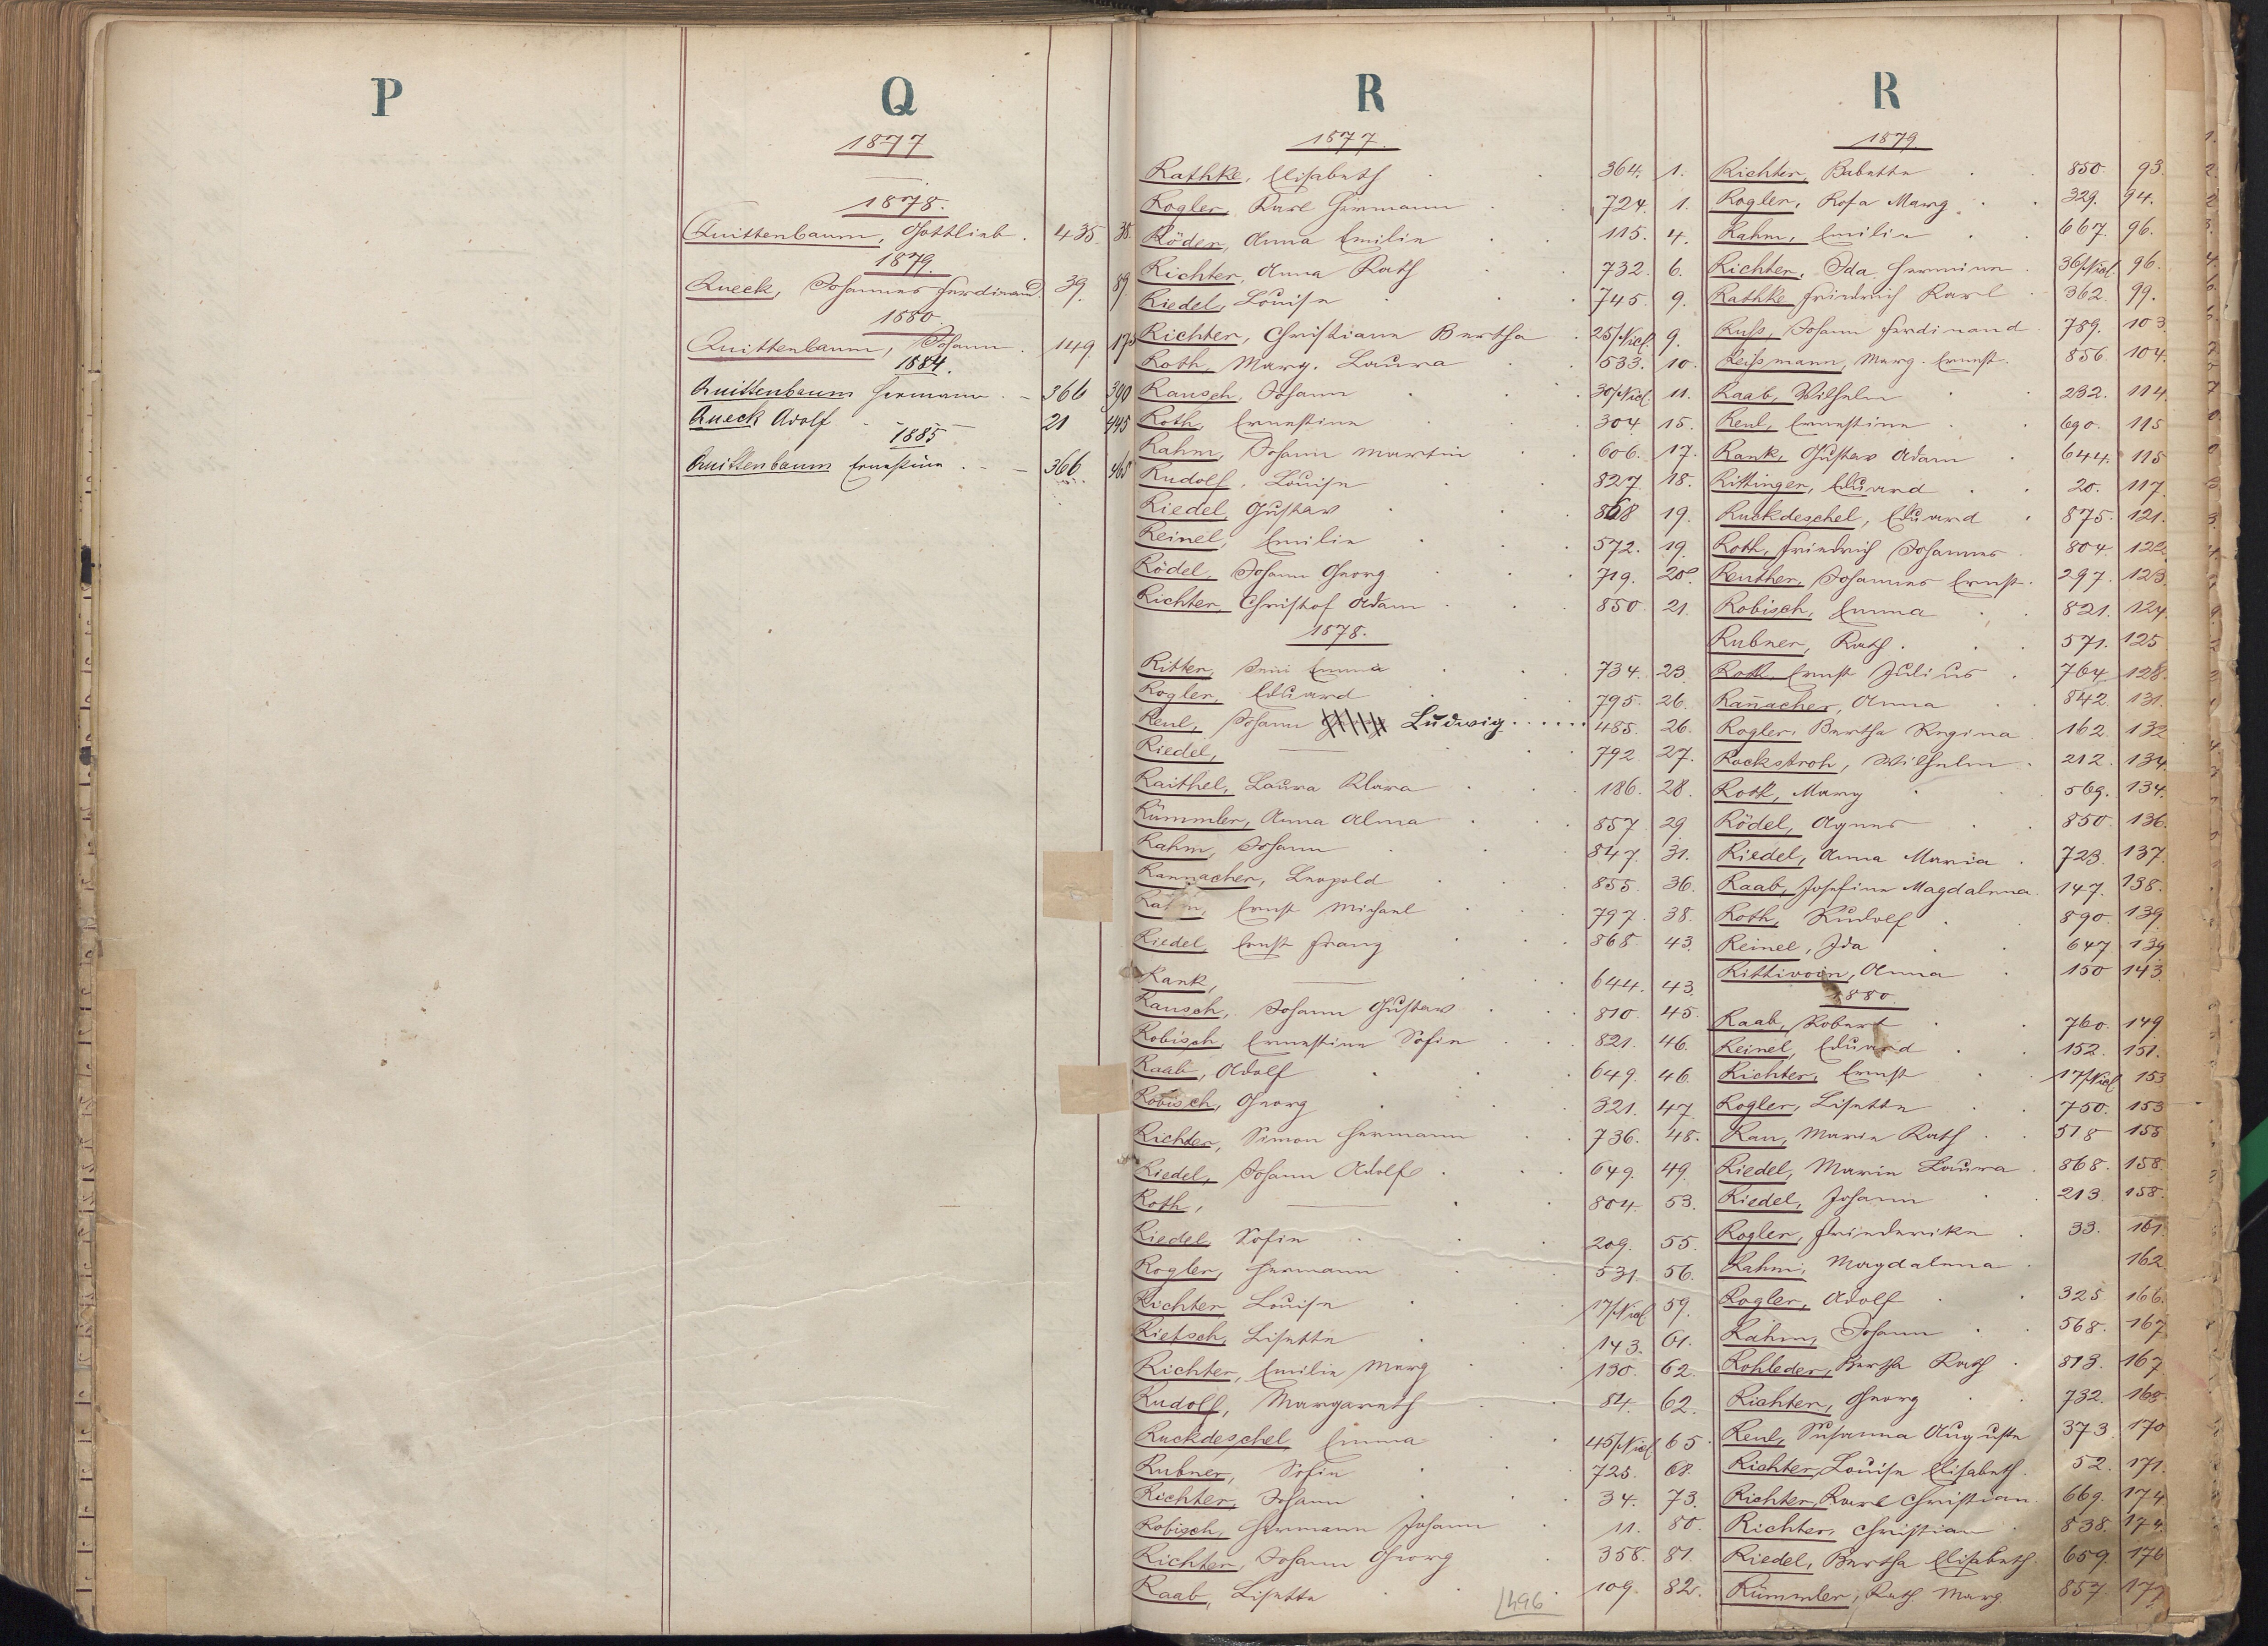 P
Q
1877
1878.
Quittenbaum, Gottlieb. 435. 35.
1879.
Queck, Johannes Ferdinand. 39. 89
1880.
Quittenbaum, Johann. 149 175
1884.
Quittenbaum Hermann. 366 390
Queck Adolf 21 445
1885
Quittenbaum Ernestine. 366 465
R
1877.
Rathke, Elisabeth 364. 1.
Rogler, Karl Hermann 724. 1.
Röder, Anna Emilie 115. 4.
Richter, Anna Kath 732. 6.
Riedel, Louise 745. 9.
Richter, Christiane Bertha 25/Nicl. 9.
Roth, Marg. Laura 533. 10.
Rausch, Johann 30/Nicl. 11.
Roth, Ernestine 304. 15.
Rahm, Johann Martin 606. 17.
Rudolf, Louise 827. 18.
Riedel, Gustav 868 19.
Reinel, Emilie 572. 19.
Rödel, Johann Georg 719. 20.
Richter, Christof Adam 850. 21.
1878.
Ritter, Emma 734. 23.
Rogler, Eduard 795. 26.
Reul, Johann Ludwig 485. 26.
Riedel, — 792. 27.
Raithel, Laura Klara 186. 28.
Rümmler, Anna Alma 857. 29.
Rahm, Johann 847. 31.
Rannacher, Leopold 855. 36.
Rahm, Ernst Michael 797. 38.
Riedel, Ernst Franz 868 43.
Rank, — 644. 43.
Rausch, Johann Gustav 810. 45.
Robisch, Ernestine Sofie 821. 46.
Raab, Adolf 649. 46.
Robisch, Georg 321. 47.
Richter, Simon Hermann 736. 48.
Riedel, Johann Adolf 649. 49.
Roth, — 804. 53.
Riedel, Sofie 209. 55.
Rogler, Hermann 531. 56.
Richter, Louise 17/Nicl 59.
Rietsch, Lisette 143. 61.
Richter, Emilie Marg 130. 62.
Rudolf, Margareth 84. 62.
Ruckdeschel Emma 45/Nicl 65.
Rubner, Sofie 725. 68.
Richter, Johann 34. 73.
Robisch, Hermann Johann 11. 80.
Richter, Johann Georg 358. 81.
Raab, Lisette 109. 82.
496
R
1879
Richter, Babette 850. 93.
Rogler, Rosa Marg. 329. 94.
Rahm, Emilie 667. 96.
Richter, Ida Hermine 36/Nicl. 96.
Rathke Friedrich Karl 362. 99.
Russ, Johann Ferdinand 789. 103.
Reissmann, Marg. Ernest. 856. 104.
Raab, Wilhelm 232. 114.
Reul, Ernestine 690. 115
Rank, Gustav Adam 644. 115
Rittinger, Eduard 20. 117.
Ruckdeschel, Eduard 875. 121.
Roth, Friedrich Johannes 804. 122
Reuther, Johannes Ernst. 297. 123.
Robisch, Emma 821. 124.
Rubner, Kath. 571. 125
Roth Ernst Julius 764. 128.
Rañacher, Anna 842. 131.
Rogler, Bertha Regina 162. 132
Rockstroh, Wilhelm 212. 134.
Roth, Marg 569. 134.
Rödel, Agnes 850. 136.
Riedel, Anna Maria 723. 137.
Raab, Josefine Magdalena 147. 138.
Roth, Rudolf 890. 139.
Reinel, Ida 647 139
Rittivoin, Anna 150 143
1880.
Raab, Robert 760. 149
Reinel, Eduard 152. 151.
Richter, Ernst 17/Nicl. 153
Rogler, Lisette 750. 153
Rau, Marie Kath 518 155
Riedel, Marie Laura 868. 158.
Riedel, Johann 213. 158.
Rogler, Friederike 33. 161.
Rahm, Magdalena 162
Rogler, Adolf 325 166.
Rahm, Johann 568. 167
Rohleder, Bertha Kath 813. 167
Richter, Georg 732. 168.
Reul, Susanna Auguste 373 170
Richter, Louise Elisabeth. 52. 171.
Richter, Karl Christian 669. 174
Richter, Christian 838. 174.
Riedel, Bertha Elisabeth. 659. 176
Rümmler, Kath. Marg. 857. 177.